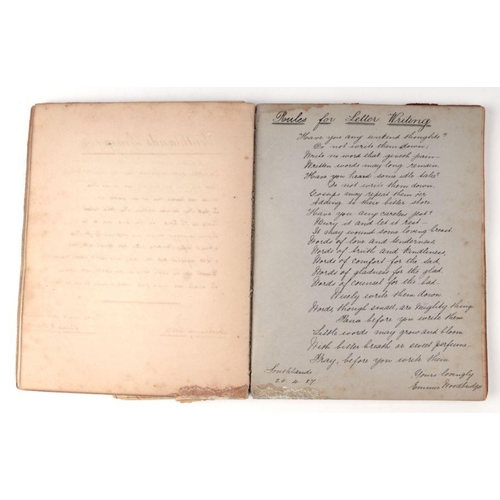 Rules for Letter Writing
Have you any unkind thoughts?
Do not write them down.
Write no word that giveth pain—
Written words may long remain.
Have you heard some idle tale?
Do not write them down.
Gossips may repeat them o'er
Adding to their bitter store.
Have you any careless jest?
Bury it and let it rest—
It may wound some loving breast.
Words of love and tenderness,
Words of truth and kindliness,
Words of comfort for the sad,
Words of gladness for the glad,
Words of counsel for the bad.
Wisely write them down.
Words, though small, are mighty things
Pause before you write them
Little words may grow and bloom
With bitter breath or sweet perfume.
Pray, before you write them
Yours lovingly
Emmie Woodbridge